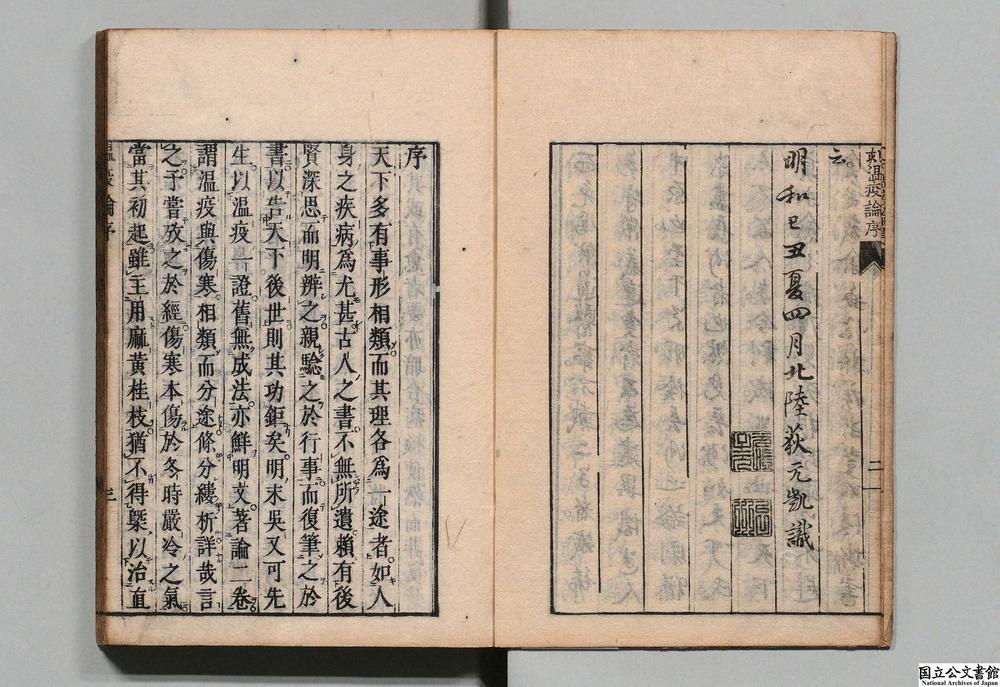 刻温疫論序
云
明和己丑夏四月北陸荻元凱識
二
序
天下多有事形相類而其理各爲一途者如人
身之疾病爲尤甚古人之書不無所遺賴有後
賢深思而明辨之親驗之於行事而復筆之於
書以告天下後世則其功鉅矣明末吳又可先
生以温疫一證舊無成法亦鮮明文著論二卷
謂温疫與傷寒相類而分途條分縷析詳哉言
之予嘗攷之於經傷寒本傷於冬時嚴冷之氣
當其初起雖主用麻黃桂枝猶不得槩以治直
温疫論序
三
国立公文書館
National Archives of Japan